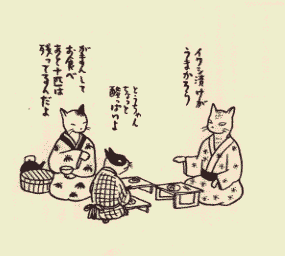 イワシ漬けが
うまかろう
とうちゃん
ちょっと
酸っぱいよ
がまんして
お食べ
あと十匹は
残ってるんだよ